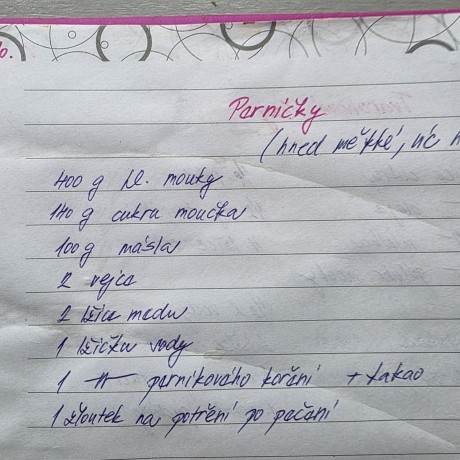 Perníčky
(hned měkké, víc
400 g hl. mouky
140 g cukru moučka
100 g másla
2 vejce
2 lžíce medu
1 lžička vody
1 -#- perníkového koření + kakao
1 žloutek na potření po pečení